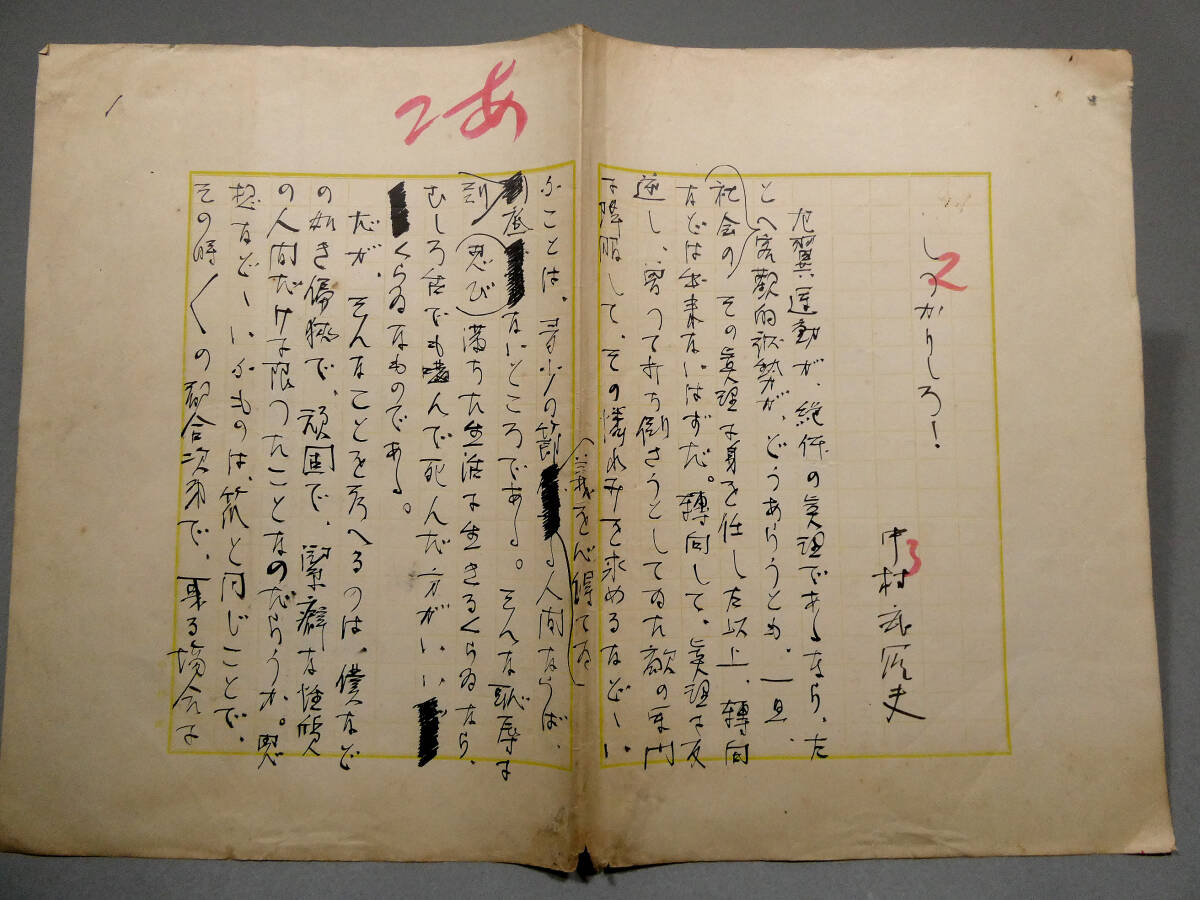 2あ
2
しつかりしろ!
3
中村武羅夫
左翼運動が、絶体の眞理であるなら、た
とへ客観的状勢が、どうあらうとも、一旦、
社会の その眞理に身を任した以上、轉向
などは出来ないはずだ。轉向して、眞理に反
逆し、曽つて打ち倒さうとしてゐた敵の軍門
に降服して、その憐れみを求めるなどゝい
ふことは、多少の節義を心得てゐる人間ならば、
到底 ないところである。そんな恥辱に
忍び 満ちた生活に生きるくらゐなら、
むしろ舌でも噛んで死んだ方がいゝ
くらゐなものである。
だが、そんなことを考へるのは、僕など
の如き偏狭で、頑固で、潔癖な性質
の人間だけに限つたことなのだらうか。思
想などゝいふものは、質と同じことで、
その時〱の都合次第で、或る場合に